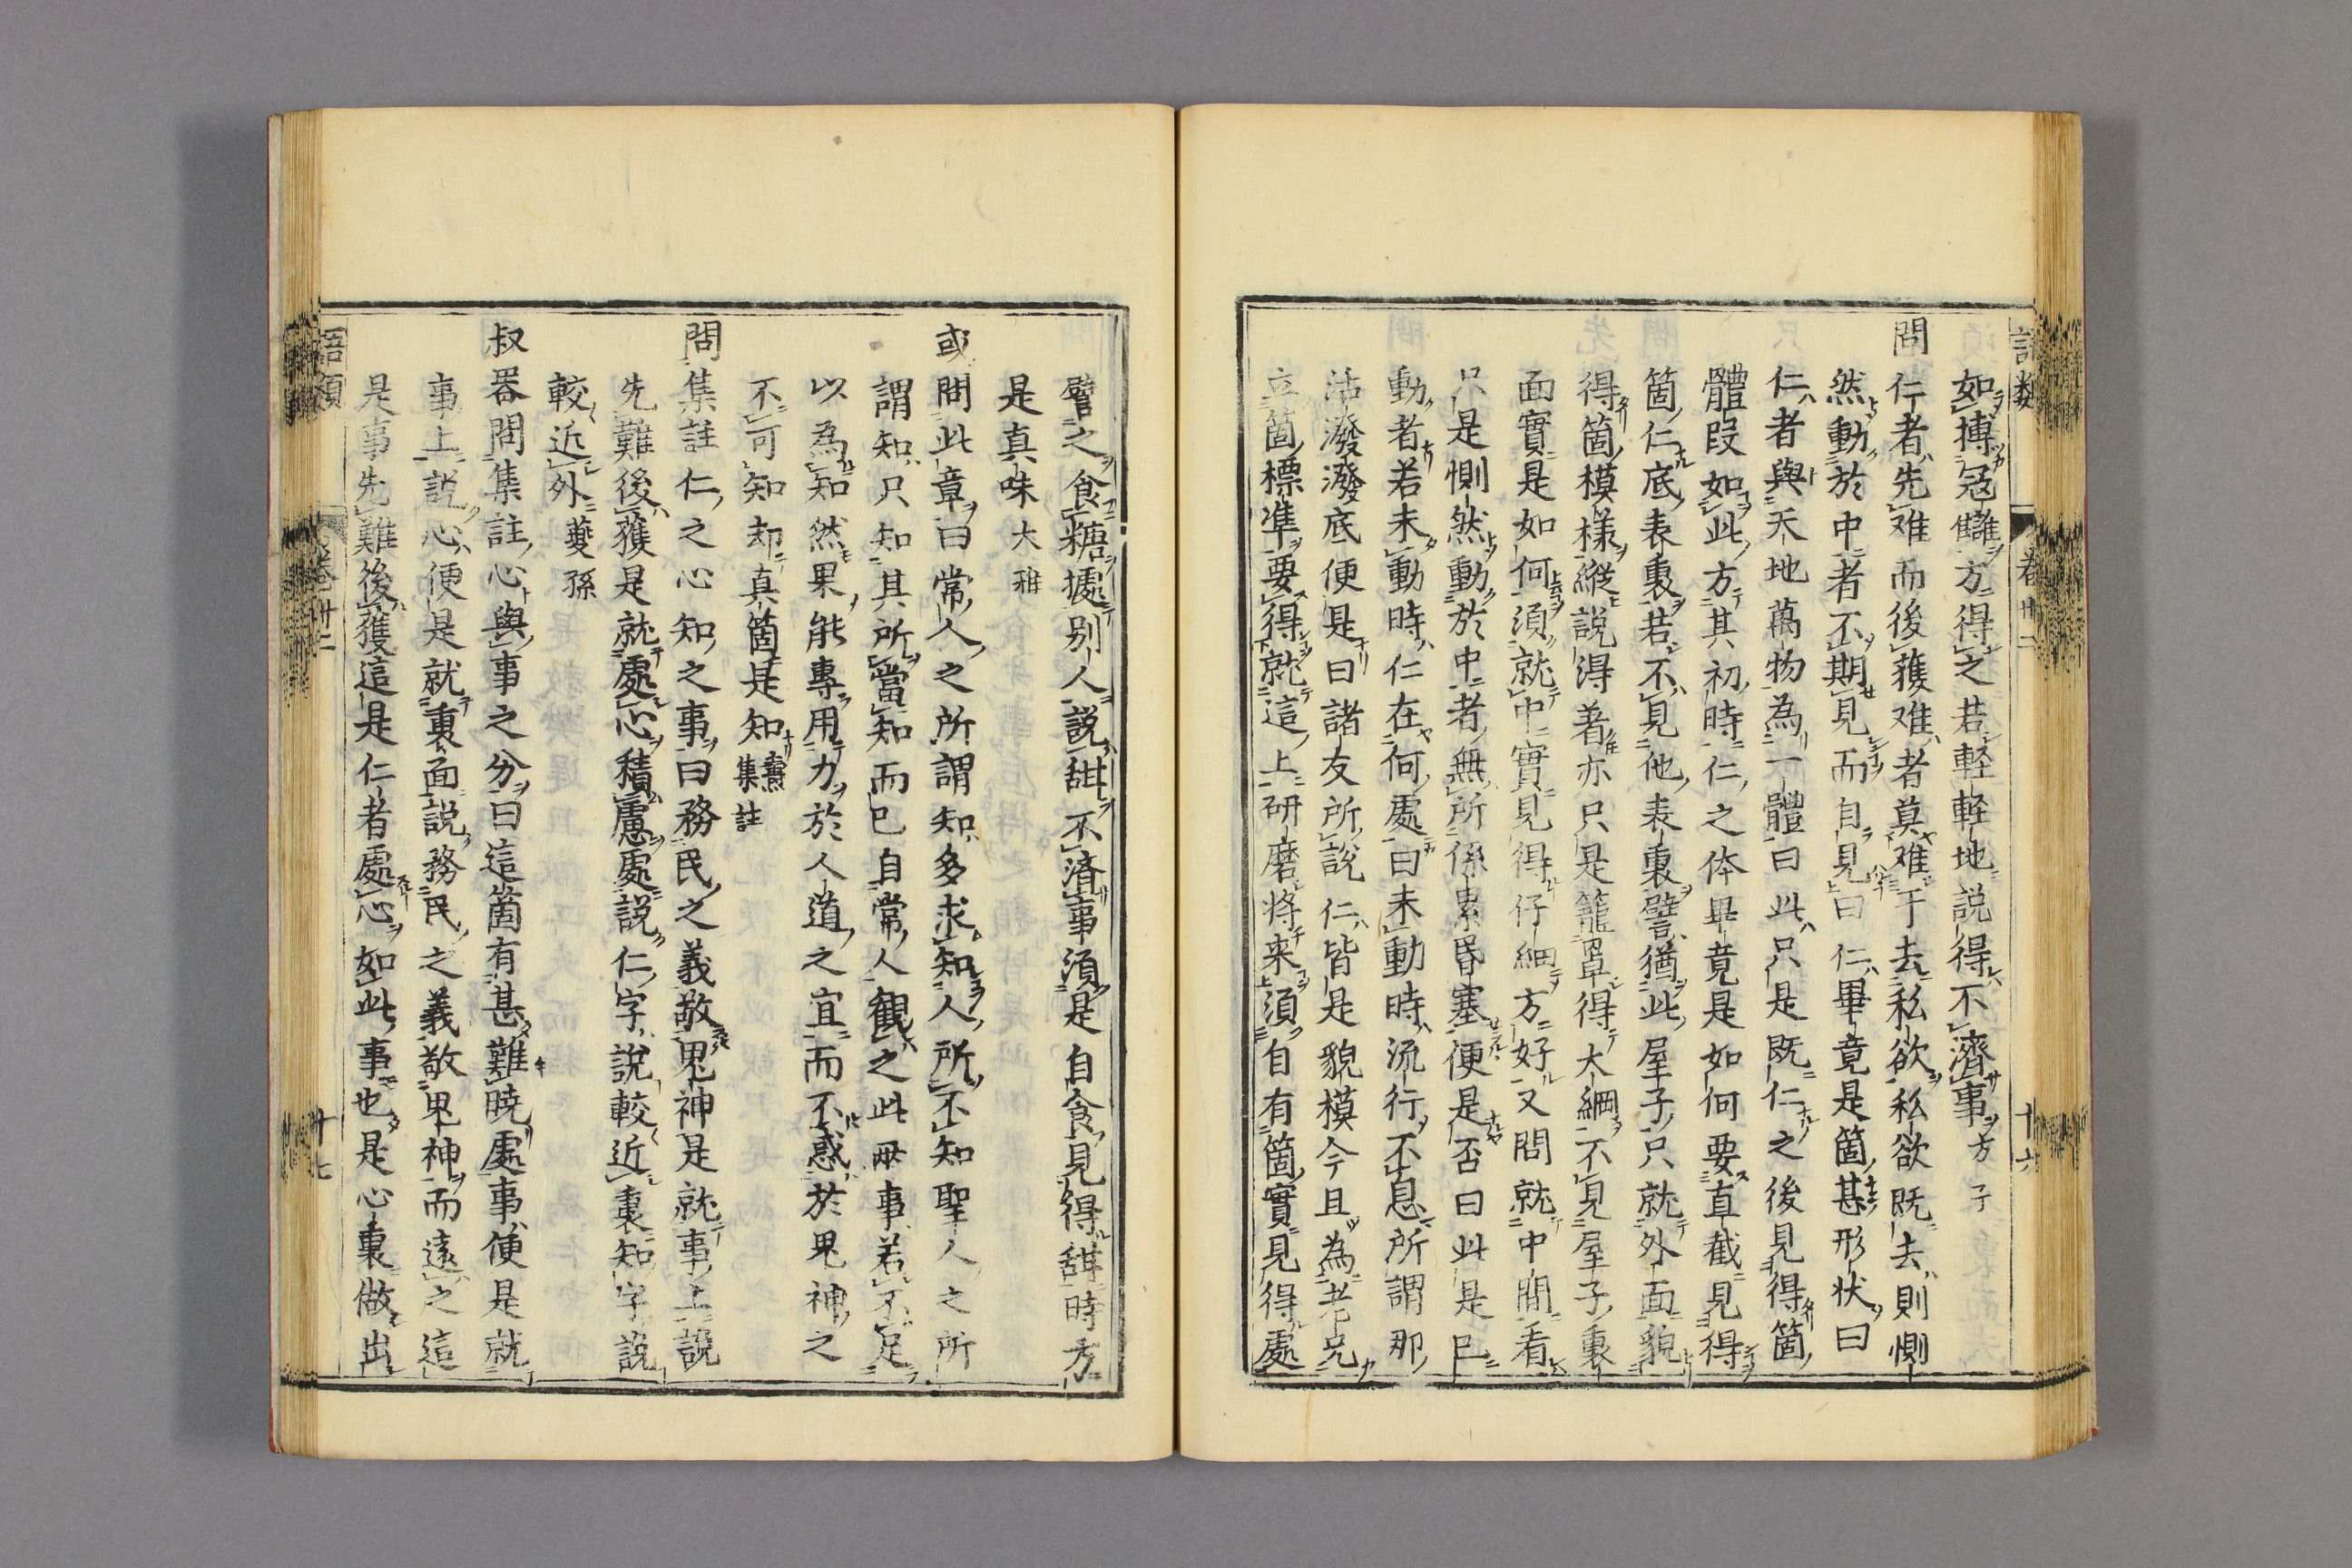 語類 卷卅二 十六
如搏冦讎方得之若軽軽地説得不濟事方子
問仁者先难而後獲难者莫难于去私欲私欲既去則惻
然動於中者不期見而自見曰仁畢竟是箇甚形状曰
仁者與天地萬物為一體曰此只是既仁之後見得箇
體段如此方其初時仁之体畢竟是如何要直截見得
箇仁底表裏若不見他表裏譬猶此屋子只就外面貌
得箇模様縱説得著亦只是籠罩得大綱不見屋子裏
面實是如何須就中實見得仔細方好又問就中間看
只是惻然動於中者無所係累昏塞便是否曰此是已
動者若未動時仁在何處曰未動時流行不息所謂那
活潑潑底便是曰諸友所説仁皆是貌模今且為老兄
立箇標準要得就這上研磨将来須自有箇實見得處
譬之食糖據别人説甜不濟事須是自食見得甜時方
是真味大雅
或問此章曰常人之所謂知多求知人所不知聖人之所
謂知只知其所當知而已自常人觀之此兩事若不足
以為知然果能專用力於人道之宜而不惑於鬼神之
不可知却真箇是知燾集註
問集註仁之心知之事曰務民之義敬鬼神是就事上説
先難後獲是就處心積慮處説仁字説較近裏知字説
較近外夔孫
叔器問集註心與事之分曰這箇有甚難暁處事便是就
事上説心便是就裏面説務民之義敬鬼神而遠之這
是事先難後獲這是仁者處心如此事也是心裏做出
語類 卷卅二 十七